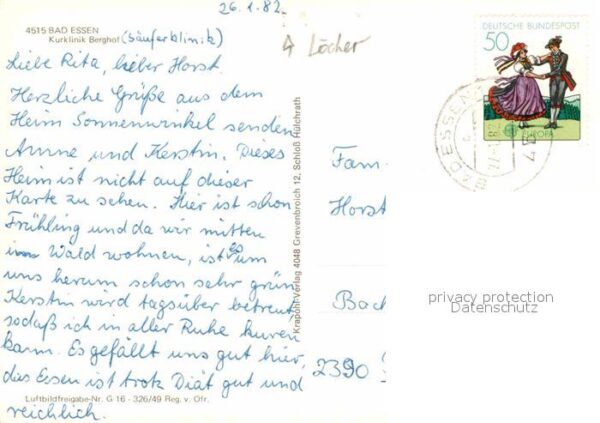 26.1.82.
4515 BAD ESSEN
Kurklinik Berghof (Säuferklinik)
4 Löcher
Liebe Rita, lieber Horst.
Herzliche Grüße aus dem
Heim Sonnenwinkel senden
Anne und Kerstin. Dieses
Heim ist nicht auf dieser
Karte zu sehen. Hier ist schon
Frühling und da wir mitten
im Wald wohnen, ist es um
uns herum schon sehr grün
Kerstin wird tagsüber betreut,
sodaß ich in aller Ruhe kuren
kann. Es gefällt uns gut hier,
das Essen ist trotz Diät gut und
reichlich.
Luftbildfreigabe-Nr. G 16 - 326/49 Reg. v. Ofr.
Krapohl-Verlag 4048 Grevenbroich 12, Schloß Hülchrath
DEUTSCHE BUNDESPOST
50
EUROPA
Fam.
Horst
Bach
2390
privacy protection
Datenschutz